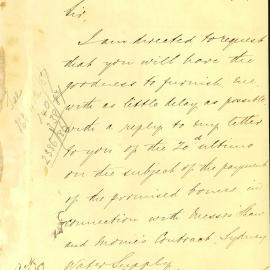 Sir,
I am directed to request
that you will have the
goodness to furnish me
with as little delay as possible
with a reply to my letter
to you of the 20th ultimo
on the subject of the payment
of the promised bonus in
connection with Messrs Shaw
and Contract, Sydney
Water Supply